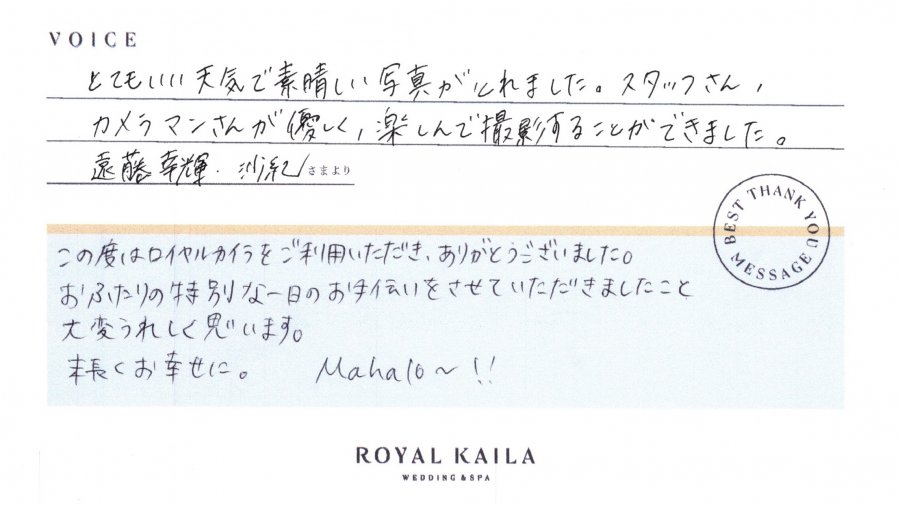 VOICE
とてもいい天気で素晴しい写真がとれました。スタッフさん,
カメラマンさんが優しく,楽しんで撮影することができました。
遠藤幸輝・沙紀さまより
BEST THANK YOU MESSAGE
この度はロイヤルカイラをご利用いただき、ありがとうございました。
おふたりの特別な一日のお手伝いをさせていただきましたこと
大変うれしく思います。
末長くお幸せに。 Mahalo〜!!
ROYAL KAILA
WEDDING & SPA